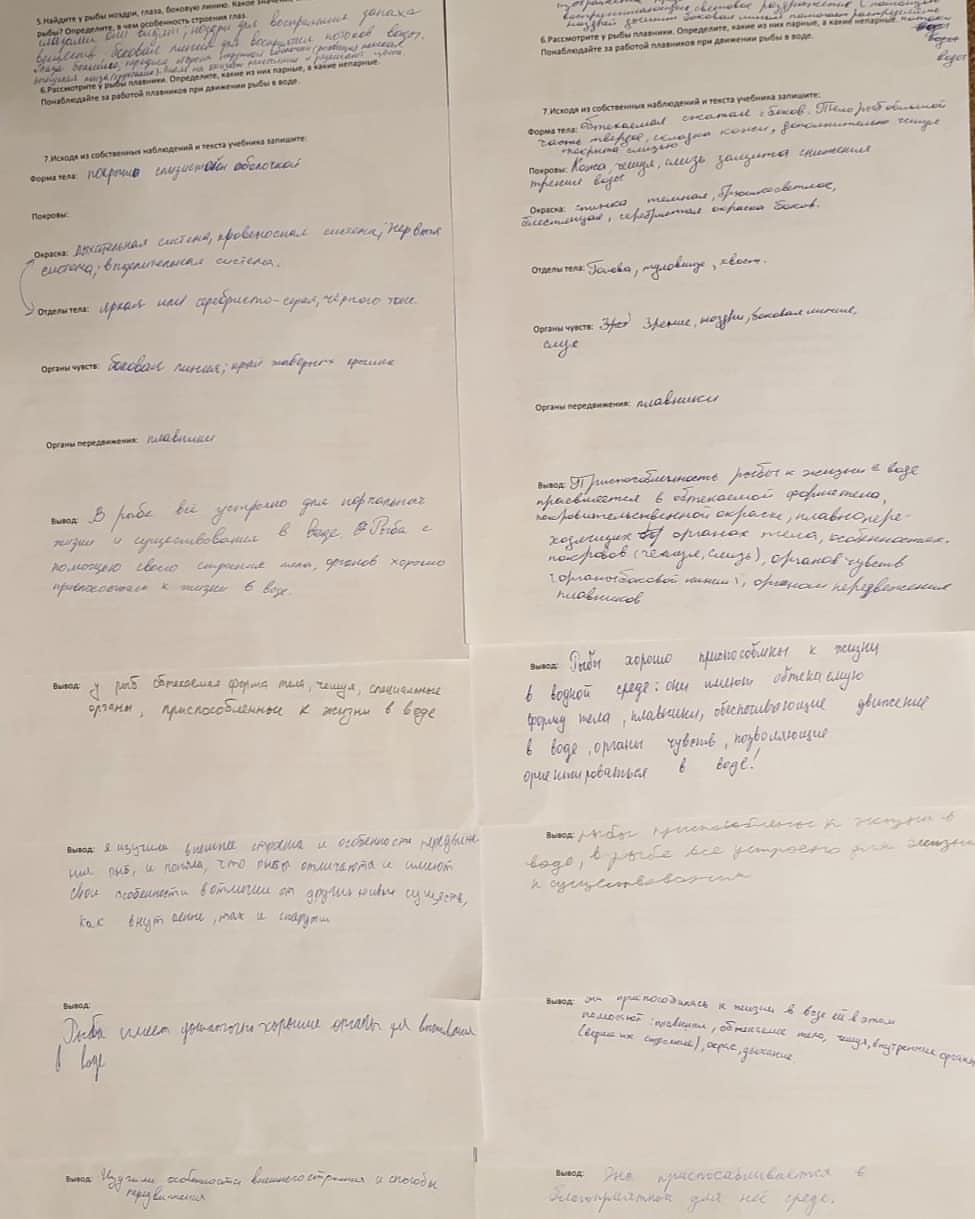 5.Найдите у рыбы ноздри, глаза, боковую линию. Какое значение
рыбы? Определите, в чем особенность строения глаз.
глазами они видят, ноздри для восприятия запаха
веществ, боковая линия для восприятия потоков воды.
6.Рассмотрите у рыбы плавники. Определите, какие из них парные, а какие непарные.
Понаблюдайте за работой плавников при движении рыбы в воде.
7.Исходя из собственных наблюдений и текста учебника запишите:
Форма тела: покрыто слизистой оболочкой
Покровы:
Окраска: дыхательная система, кровеносная система, нервная
система, выделительная система.
Отделы тела: яркая или серебристо-серая, чёрного тона.
Органы чувств: боковая линия; край жаберных крышек
Органы передвижения: плавники
Вывод: В рыбе всё устроено для нормальной
жизни и существования в воде. Рыба с
помощью своего строения тела, органов хорошо
приспособлена к жизни в воде.
Вывод: у рыб обтекаемая форма тела, чешуя, специальные
органы, приспособленные к жизни в воде
Вывод: я изучила внешнее строения и особенности передвиже
ния рыб, и поняла, что рыбы отличаются и имеют
свои особенности в отличии от других живых существ,
как внутренне, так и снаружи
Вывод:
Рыба имеет достаточно хорошие органы для выживания
в воде
Вывод: Изучили особенности внешнего строения и способы
передвижения
6.Рассмотрите у рыбы плавники. Определите, какие из них парные, а какие непарные.
Понаблюдайте за работой плавников при движении рыбы в воде.
воды
7.Исходя из собственных наблюдений и текста учебника запишите:
Форма тела: обтекаемая сжатая с боков. Тело рыб большой
часть твердое, складка кожи, дополнительно чешуе
покрыта слизью
Покровы: Кожа, чешуя, слизь защита снижения
трения воды
Окраска: спинка темная, брюшко светлое,
блестящая, серебристая окраска боков.
Отделы тела: Голова, туловище, хвост.
Органы чувств: Зрение, ноздри, боковая линия,
Органы передвижения: плавники
Вывод: Приспособленность рыбы к жизни в воде
проявляется в обтекаемой форме тела,
покровительственной окраске, плавно пере-
ходящих органах тела, особенностях
покровов (чешуя, слизь), органов чувств
(органы боковой линии), органам передвежения
плавников
Вывод: Рыбы хорошо приспособлены к жизни
в водной среде: они имеют обтекаемую
форму тела, плавники, обеспечивающие движение
в воде, органы чувств, позволяющие
ориентироваться в воде!
Вывод: рыбы приспособлены к жизни в
воде, в рыбе все устроено для жизни
и существования
Вывод: она приспособилась к жизни в воде ей в этом
помогают: плавники, обтекаемое тело, чешуя, внутренние органы
строение), окрас, дыхание.
Вывод: Она приспосабливается в
благоприятной для неё среде.